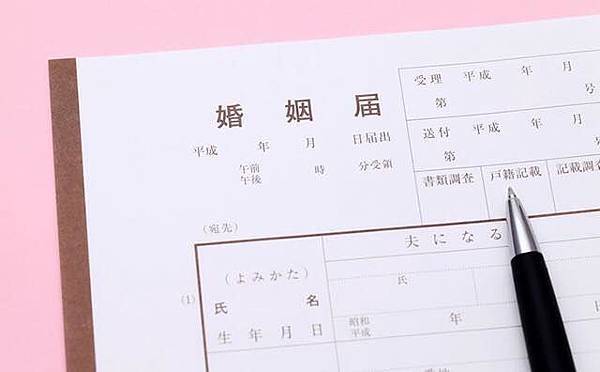 婚姻届
平成 年 月 日届出
午前
午後 時 分受領
受理 平成 年 月
第 号
送付 平成 年
第
書類調査 戸籍記載 記載調
(宛先)
夫になる
(よみかた)
氏
(1)
氏名
生年月日
昭和
平成 年